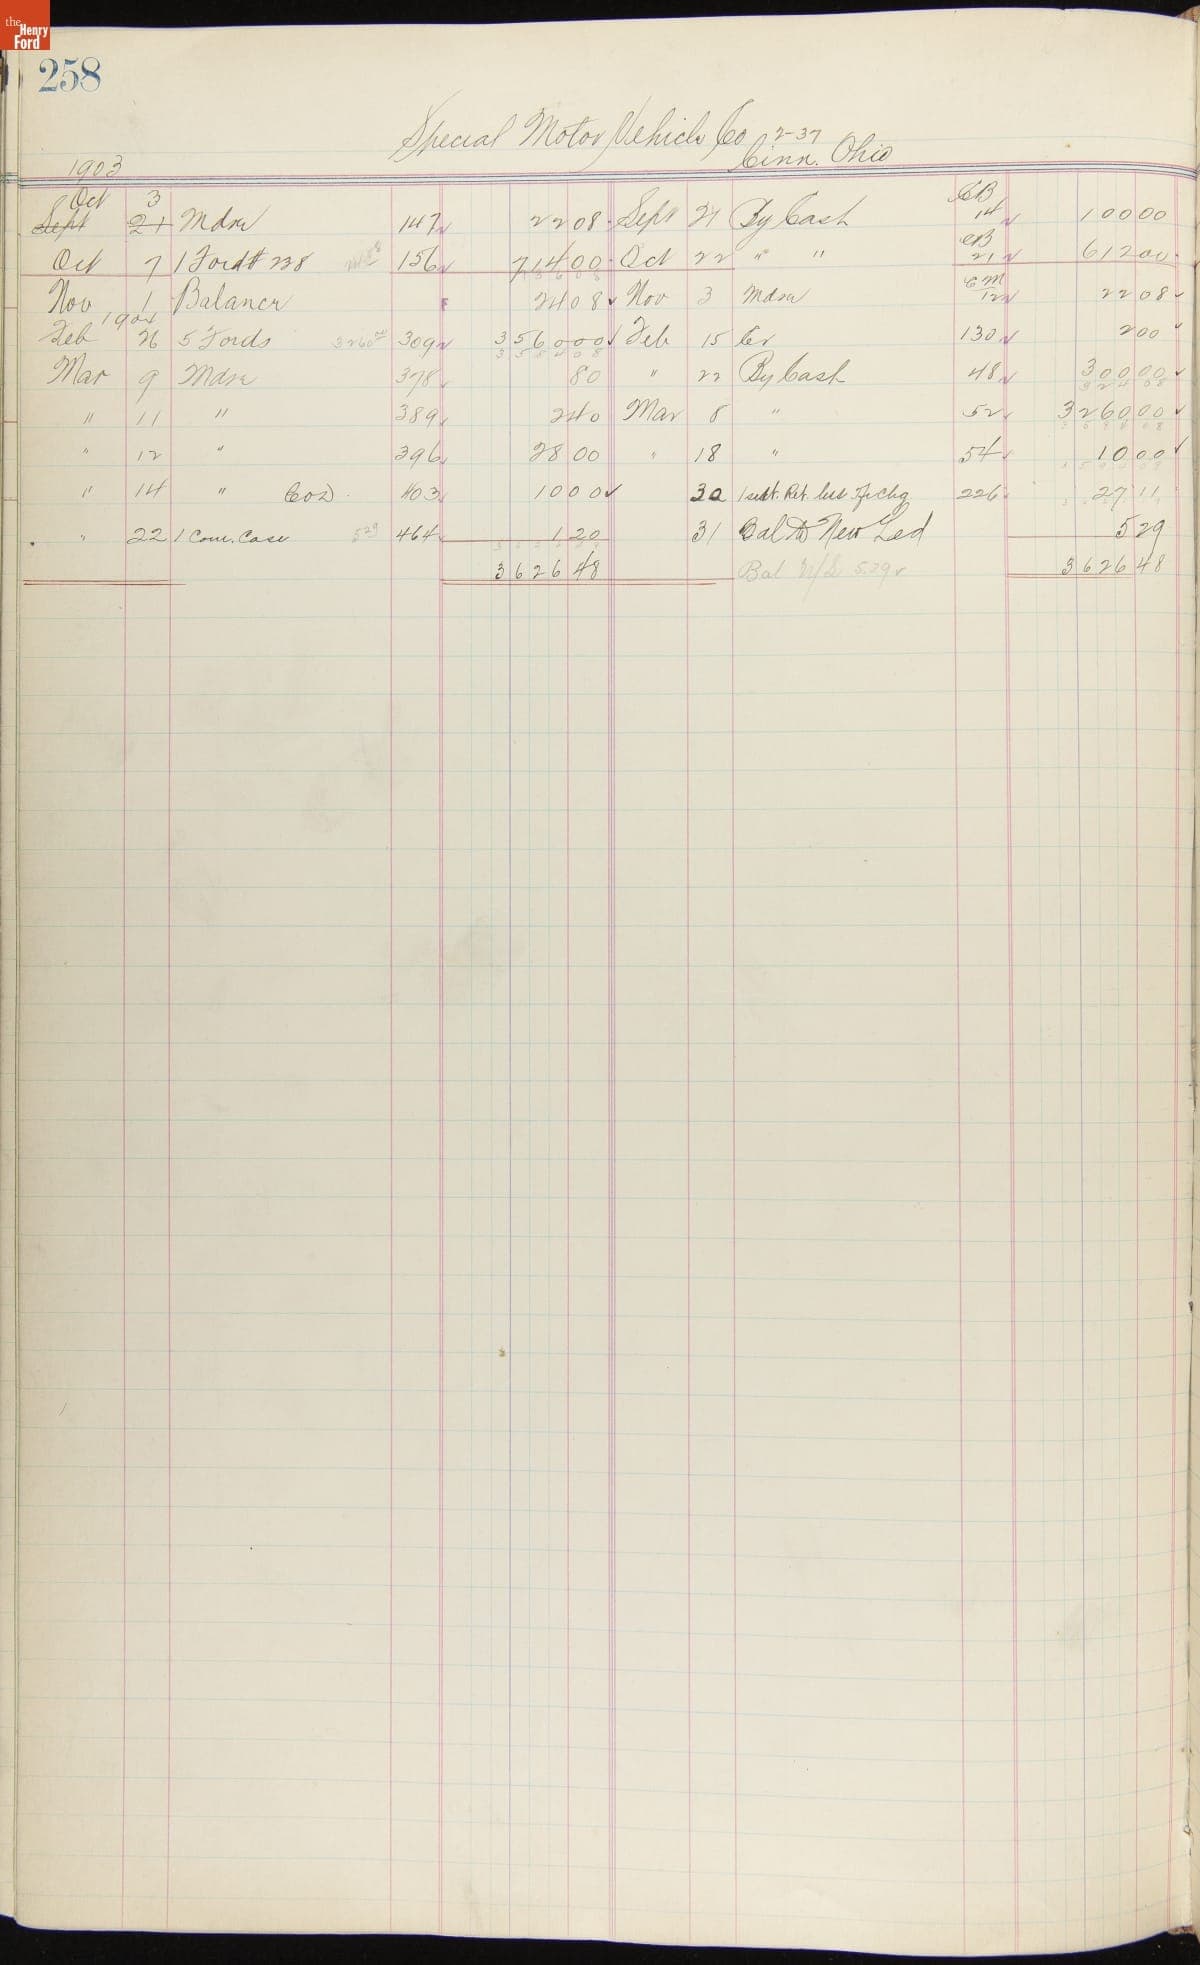 the Henry Ford
258
Special Motor Vehicle Co 2-37
Cinn. Ohio
1903
Oct 3 CB
Sept 21 Mdse 147 22 08 Sept 21 By Cash 14 100 00
Oct 7 1 Ford # 238 156 714 00 Oct 22 " " CB 21 612 00
Nov 1 Balance F 24 08 Nov 3 Mdse CM 12 22 08
1904
Feb 26 5 Fords 3260 00 309 3560 00 Feb 15 Cr 130 2 00
Mar 9 Mdse 378 80 " 22 By Cash 48 300 00
" 11 " 389 2 40 Mar 8 " 52 3260 00
" 12 " 396 28 00 " 18 " 54 10 00
" 14 " COD 403 10 00 30 226 27 11
" 22 1 Com. Case 529 464 1 20 31 Bal to New Led 5 29
3626 48 Bal N/L 5.29 3626 48